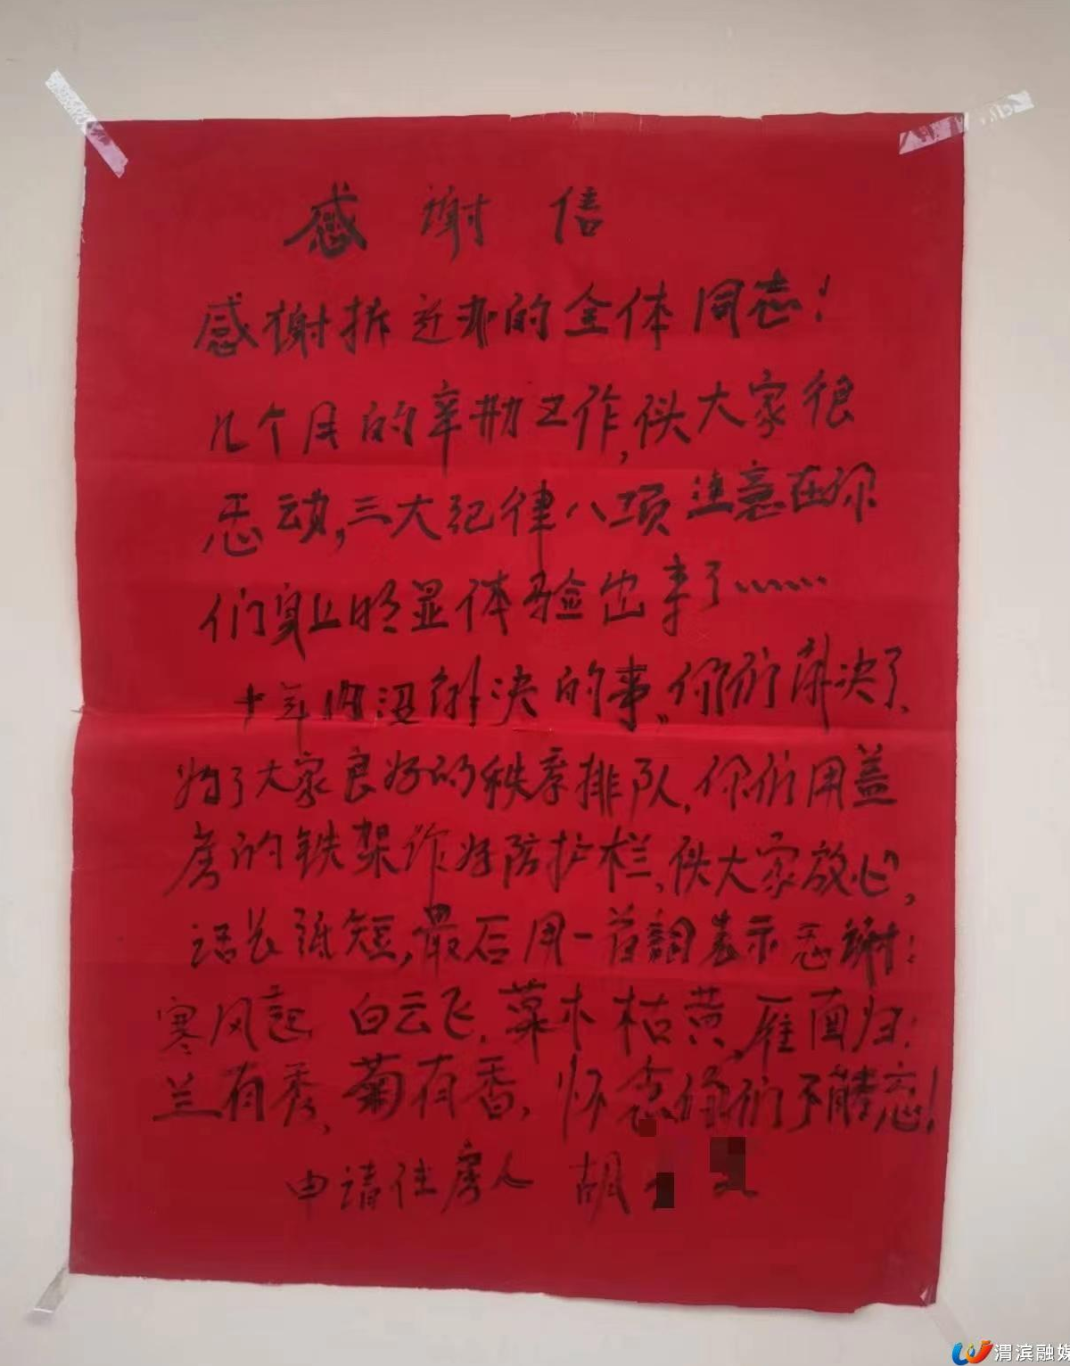 感谢信
感谢拆迁办的全体同志！
几个月的辛勤工作，使大家很
感动，三大纪律八项注意在你
们身上明显体验出来了……
十年内没解决的事，你们解决了、
为了大家良好的秩序排队，你们用盖
房的铁架作好防护栏、使大家放心，
话长纸短，最后用一首词表示感谢：
寒风起 白云飞，草木枯黄，雁南归：
兰有秀，菊有香，怀念你们不能忘！
申请住房人 胡
渭滨融媒